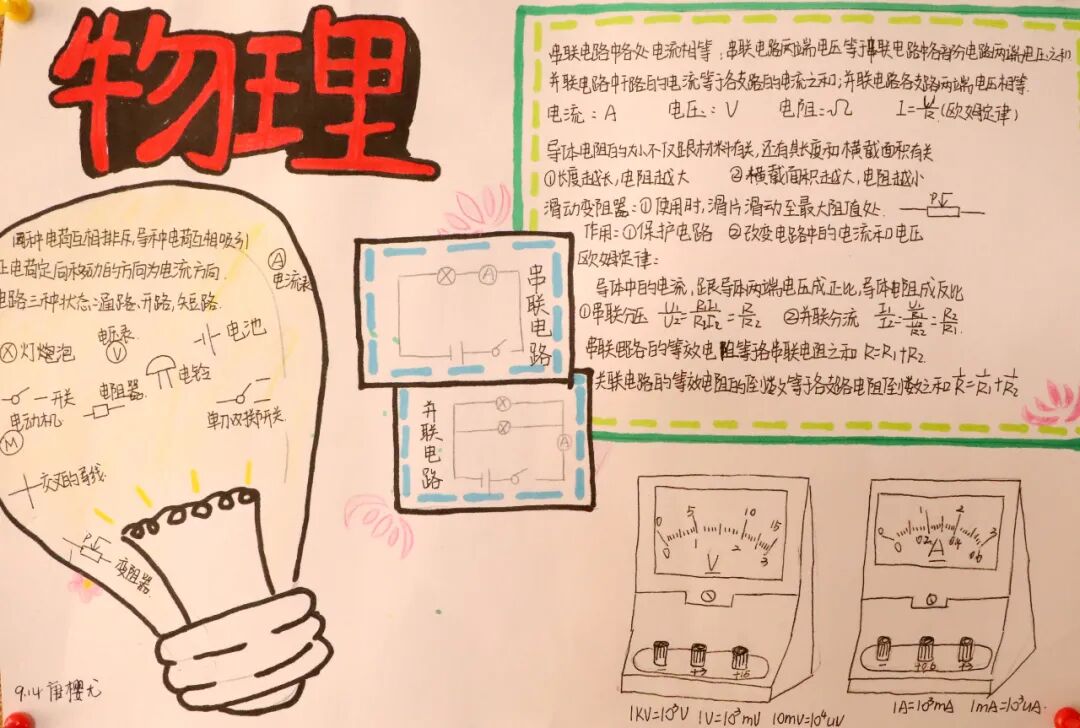 物理
串联电路中各处电流相等；串联电路两端电压等于串联电路中各部分电路两端电压之和
并联电路中干路的电流等于各支路的电流之和；并联电路各支路两端电压相等.
电流：A 电压：V 电阻：Ω I=U/R(欧姆定律)
导体电阻的大小不仅跟材料有关，还有其长度和横截面积有关
①长度越长，电阻越大 ②横截面积越大，电阻越小
滑动变阻器：①使用时，滑片滑动至最大阻值处. P
作用：①保护电路 ②改变电路中的电流和电压
欧姆定律：
导体中的电流，跟导体两端电压成正比，导体电阻成反比
①串联分压 ②并联分流
串联电路的等效电阻等于各串联电阻之和 R=R₁+R₂.
关联电路的等效电阻的倒数等于各支路电阻倒数之和 1/R=1/R₁+1/R₂
两种电荷互相排斥，异种电荷互相吸引
正电荷定向移动的方向为电流方向.
电路三种状态：通路、开路、短路.
A
电流表
电压表
V
电池
灯炮泡
电铃
开关
电阻器
单刀双掷开关
电动机
M
交叉的导线
P
变阻器
串联电路
A
并联电路
A
0 5 10 15
0 1 2 3
V
- +3 +15
0 1 2 3
0 0.2 0.4 0.6
A
- +0.6 +3
1KV=10³V 1V=10³mV 10mV=10⁴uV
1A=10³mA 1mA=10³uA.
9.14